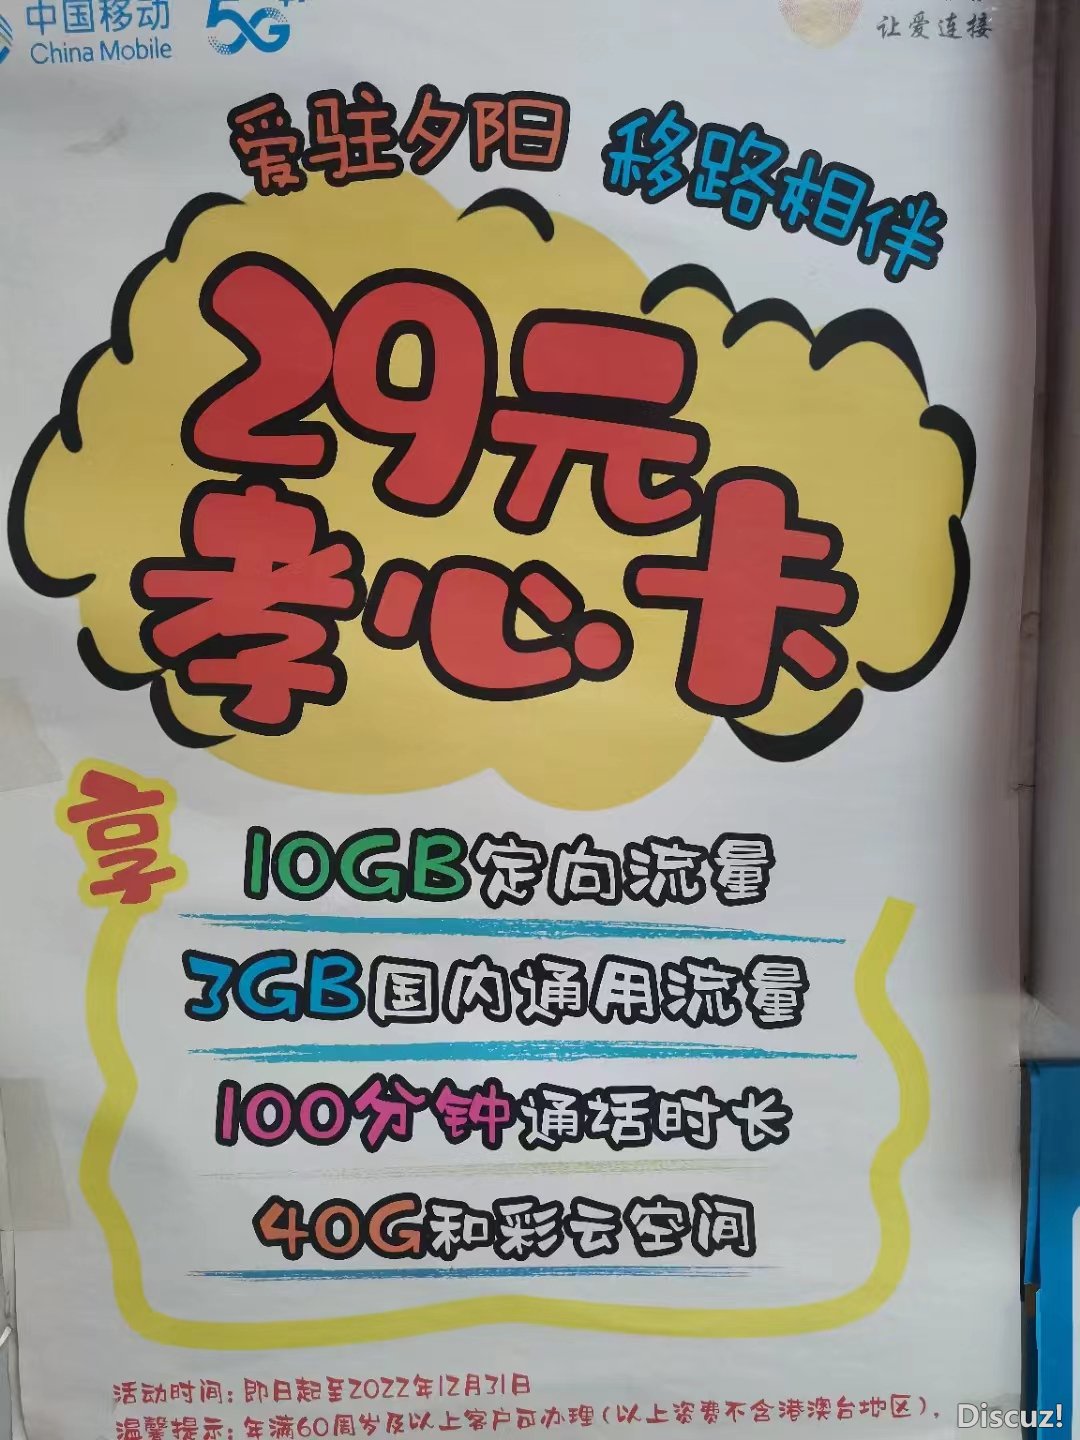 中国移动
China Mobile
5G
让爱连接
爱驻夕阳 移路相伴
29元
孝心卡
享
10GB定向流量
3GB国内通用流量
100分钟通话时长
40G和彩云空间
活动时间：即日起至2022年12月31日
温馨提示：年满60周岁及以上客户可办理（以上资费不含港澳台地区）。
Discuz!